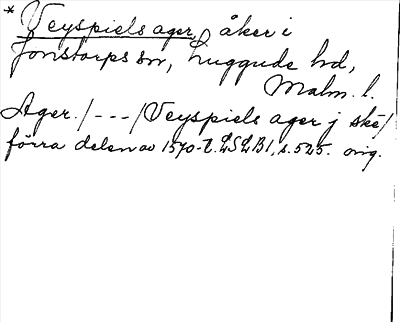 * Veyspiels ager, åker i
Jonstorps sn, Luggude hd,
Malm. l.
Ager. /---/ Veyspiels ager j skē/
förra delen av 1570-t. LSLB1, s. 525. orig.